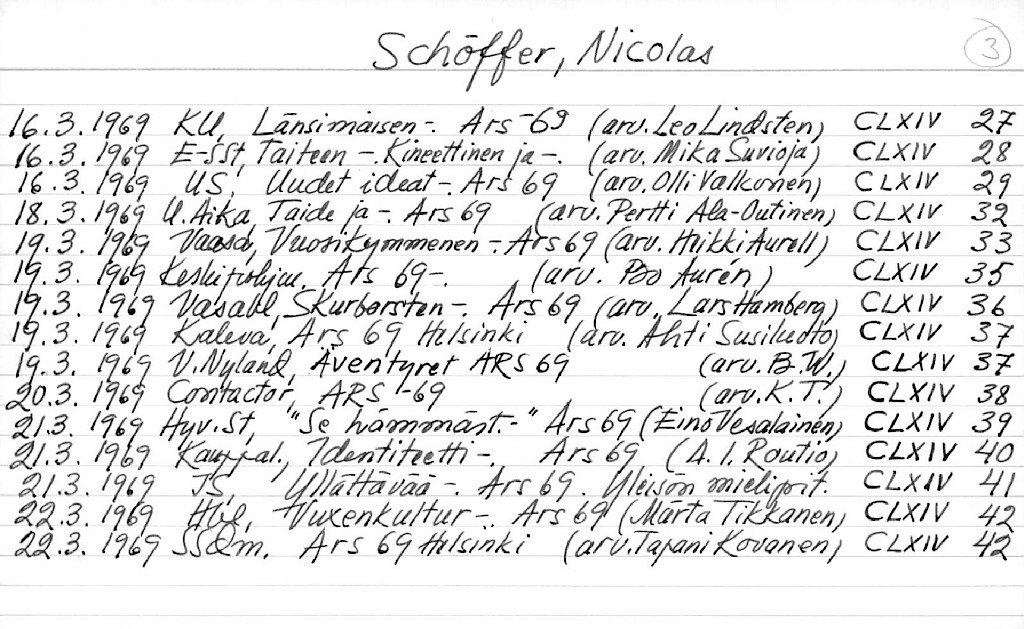 Schöffer, Nicolas 3
16.3.1969 KU, Länsimaisen-. Ars-69 (arv. Leo Lindsten) CLXIV 27
16.3.1969 E-SSt, Taiteen -. Kineettinen ja -. (arv. Mika Suvioja) CLXIV 28
16.3.1969 US, Uudet ideat-. Ars 69 (arv. Olli Valkonen) CLXIV 29
18.3.1969 U.Aika, Taide ja -. Ars 69 (arv. Pertti Ala-Outinen) CLXIV 32
19.3.1969 Vaasa, Vuosikymmenen -. Ars 69 (arv. Heikki Aurell) CLXIV 33
19.3.1969 Keskipohjan. Ars 69-. (arv. Bo Aurén) CLXIV 35
19.3.1969 Vasabl, Skurborsten-. Ars 69 (arv. Lars Hamberg) CLXIV 36
19.3.1969 Kaleva, Ars 69 Helsinki (arv. Ahti Susiluoto) CLXIV 37
19.3.1969 V.Nyland, Äventyret ARS 69 (arv. B.W.) CLXIV 37
20.3.1969 Contactor, ARS -69 (arv. K.T.) CLXIV 38
21.3.1969 Hyv.St, "Se hämmäst.-" Ars 69 (Eino Vesalainen) CLXIV 39
21.3.1969 Kauppal., Identiteetti-, Ars 69 (A.I. Routio) CLXIV 40
21.3.1969 TS, Yllättävää-. Ars 69. Yleisön mielipit. CLXIV 41
22.3.1969 Hbl, Vuxenkultur-. Ars 69 (Märta Tikkanen) CLXIV 42
22.3.1969 SSdm. Ars 69 Helsinki (arv. Tapani Kovanen) CLXIV 42